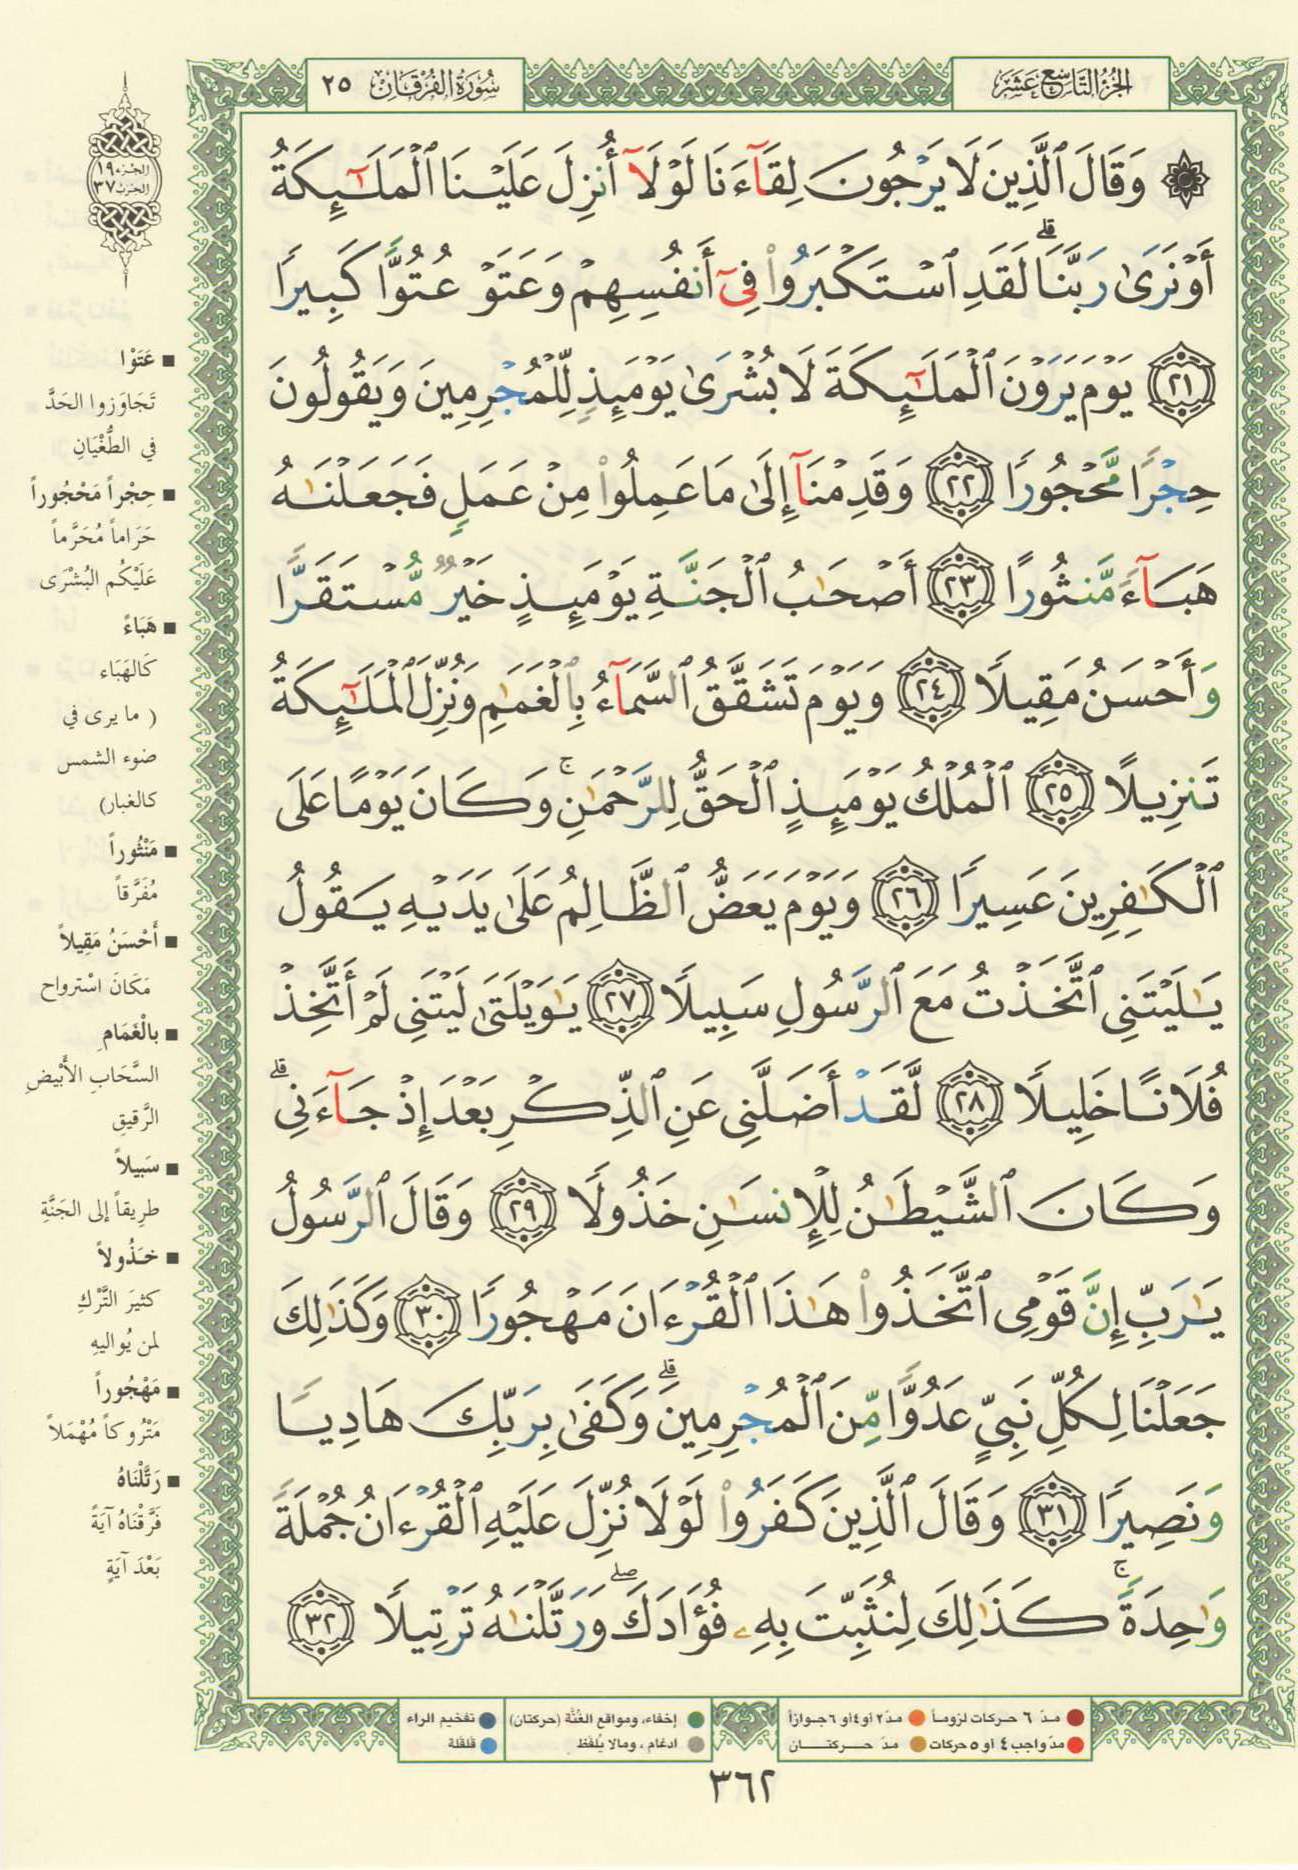 سُورَةُ الفُرْقَانِ ٢٥
الجُزْءُ التَّاسِعَ عَشَرَ
الجزء ١٩
الحزب ٣٧
۞ وَقَالَ ٱلَّذِينَ لَا يَرْجُونَ لِقَآءَنَا لَوْلَآ أُنزِلَ عَلَيْنَا ٱلْمَلَٰٓئِكَةُ
أَوْ نَرَىٰ رَبَّنَا ۗ لَقَدِ ٱسْتَكْبَرُوا۟ فِىٓ أَنفُسِهِمْ وَعَتَوْ عُتُوًّا كَبِيرًا
٢١ يَوْمَ يَرَوْنَ ٱلْمَلَٰٓئِكَةَ لَا بُشْرَىٰ يَوْمَئِذٍ لِّلْمُجْرِمِينَ وَيَقُولُونَ
حِجْرًا مَّحْجُورًا ٢٢ وَقَدِمْنَآ إِلَىٰ مَا عَمِلُوا۟ مِنْ عَمَلٍ فَجَعَلْنَٰهُ
هَبَآءً مَّنثُورًا ٢٣ أَصْحَٰبُ ٱلْجَنَّةِ يَوْمَئِذٍ خَيْرٌ مُّسْتَقَرًّا
وَأَحْسَنُ مَقِيلًا ٢٤ وَيَوْمَ تَشَقَّقُ ٱلسَّمَآءُ بِٱلْغَمَٰمِ وَنُزِّلَ ٱلْمَلَٰٓئِكَةُ
تَنزِيلًا ٢٥ ٱلْمُلْكُ يَوْمَئِذٍ ٱلْحَقُّ لِلرَّحْمَٰنِ ۚ وَكَانَ يَوْمًا عَلَى
ٱلْكَٰفِرِينَ عَسِيرًا ٢٦ وَيَوْمَ يَعَضُّ ٱلظَّالِمُ عَلَىٰ يَدَيْهِ يَقُولُ
يَٰلَيْتَنِى ٱتَّخَذْتُ مَعَ ٱلرَّسُولِ سَبِيلًا ٢٧ يَٰوَيْلَتَىٰ لَيْتَنِى لَمْ أَتَّخِذْ
فُلَانًا خَلِيلًا ٢٨ لَّقَدْ أَضَلَّنِى عَنِ ٱلذِّكْرِ بَعْدَ إِذْ جَآءَنِى ۗ
وَكَانَ ٱلشَّيْطَٰنُ لِلْإِنسَٰنِ خَذُولًا ٢٩ وَقَالَ ٱلرَّسُولُ
يَٰرَبِّ إِنَّ قَوْمِى ٱتَّخَذُوا۟ هَٰذَا ٱلْقُرْءَانَ مَهْجُورًا ٣٠ وَكَذَٰلِكَ
جَعَلْنَا لِكُلِّ نَبِىٍّ عَدُوًّا مِّنَ ٱلْمُجْرِمِينَ ۗ وَكَفَىٰ بِرَبِّكَ هَادِيًا
وَنَصِيرًا ٣١ وَقَالَ ٱلَّذِينَ كَفَرُوا۟ لَوْلَا نُزِّلَ عَلَيْهِ ٱلْقُرْءَانُ جُمْلَةً
وَٰحِدَةً ۚ كَذَٰلِكَ لِنُثَبِّتَ بِهِۦ فُؤَادَكَ ۖ وَرَتَّلْنَٰهُ تَرْتِيلًا ٣٢
■ عَتَوْا
تَجَاوَزوا الحَدَّ
في الطُّغْيَانِ
■ حِجْراً مَحْجُوراً
حَرَاماً مُحَرَّماً
عَلَيْكُم البُشْرَى
■ هَبَاءً
كَالهَبَاء
( ما يرى في
ضوء الشمس
كالغبار)
■ مَنْثُوراً
مُفَرَّقاً
■ أَحْسَنُ مَقِيلاً
مَكَانَ اسْترواح
■ بالْغَمَامِ
السَّحَابِ الأَبْيضِ
الرَّقيقِ
■ سَبيلاً
طرِيقاً إلى الجَنَّةِ
■ خذُولاً
كثيرَ التَّرْكِ
لمن يُواليهِ
■ مَهْجُوراً
مَتْرُوكاً مُهْمَلاً
■ رَتَّلْنَاهُ
فَرَّقْنَاهُ آيَةً
بَعْدَ آيَةٍ
مدّ ٦ حركات لزوماً مدّ ٢ أو ٤ أو ٦ جوازاً
مدّ واجب ٤ أو ٥ حركات مدّ حركتان
إخفاء، ومواقع الغُنَّة (حركتان) تفخيم الراء
ادغام، ومالا يُلفَظ قلقلة
٣٦٢